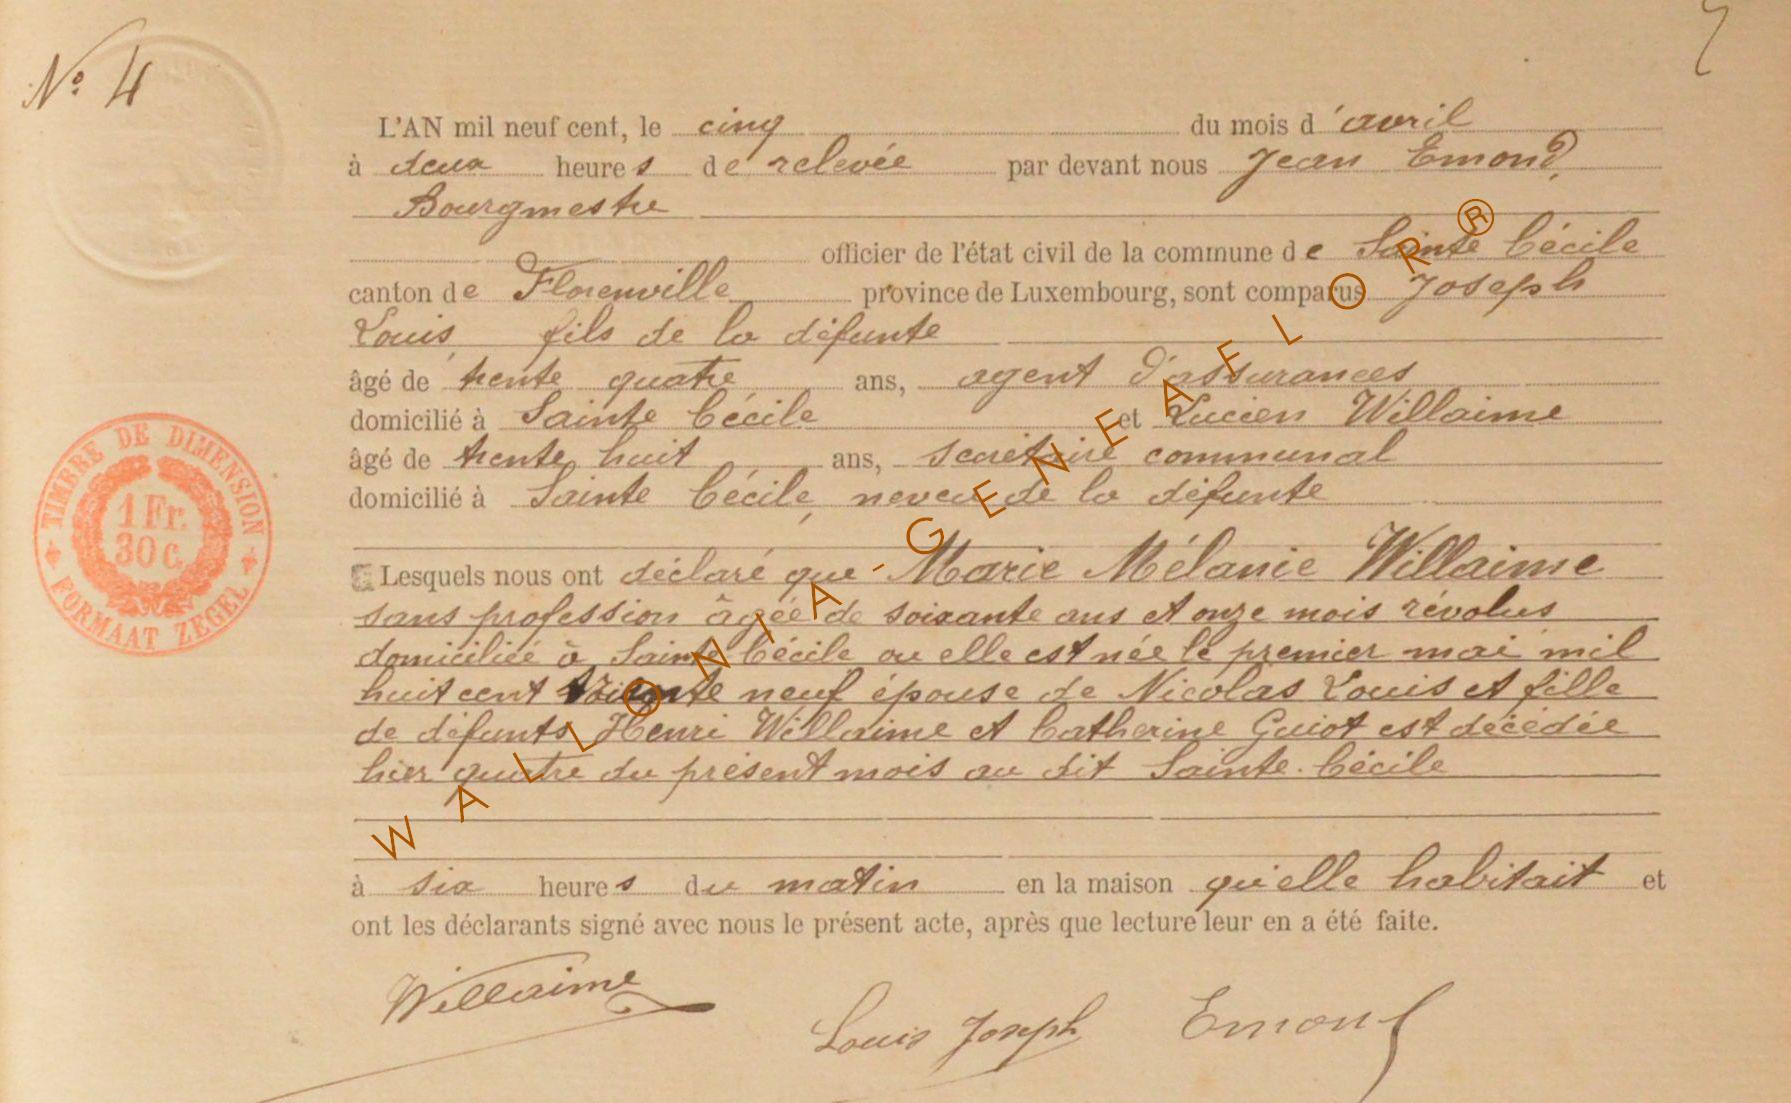 N° 4
L'AN mil neuf cent, le cinq du mois d'avril
à deux heures de relevée par devant nous Jean Emond,
Bourgmestre
officier de l'état civil de la commune de Sainte Cécile
canton de Florenville province de Luxembourg, sont comparus Joseph
Louis, fils de la défunte
âgé de trente quatre ans, agent d'assurances
domicilié à Sainte Cécile et Lucien Willaime
âgé de trente huit ans, secrétaire communal
domicilié à Sainte Cécile, neveu de la défunte
Lesquels nous ont déclaré que Marie Mélanie Willaime
sans profession âgée de soixante ans et onze mois révolus
domiciliée à Sainte Cécile ou elle est née le premier mai mil
huit cent trente neuf épouse de Nicolas Louis et fille
de défunts Henri Willaime et Catherine Guiot est décédée
hier quatre du présent mois au dit Sainte-Cécile
à six heures du matin en la maison qu'elle habitait et
ont les déclarants signé avec nous le présent acte, après que lecture leur en a été faite.
Willaime
Louis Joseph Emond
TIMBRE DE DIMENSION
1 Fr.
30 c.
FORMAAT ZEGEL
WALLONIA-GENEAFLOR®